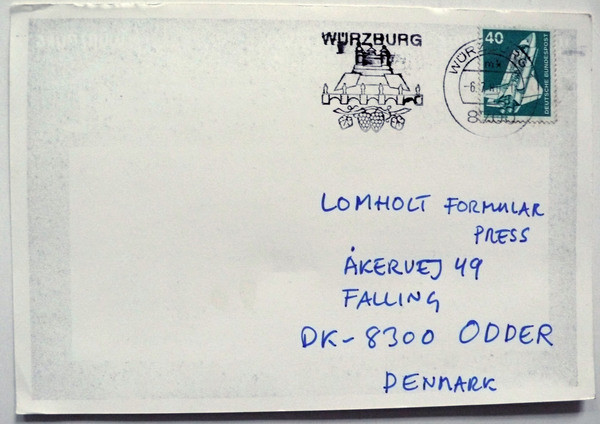 WÜRZBURG
40
DEUTSCHE BUNDESPOST
8700
LOMHOLT FORMULAR
PRESS
ÅKERVEJ 49
FALLING
DK-8300 ODDER
DENMARK